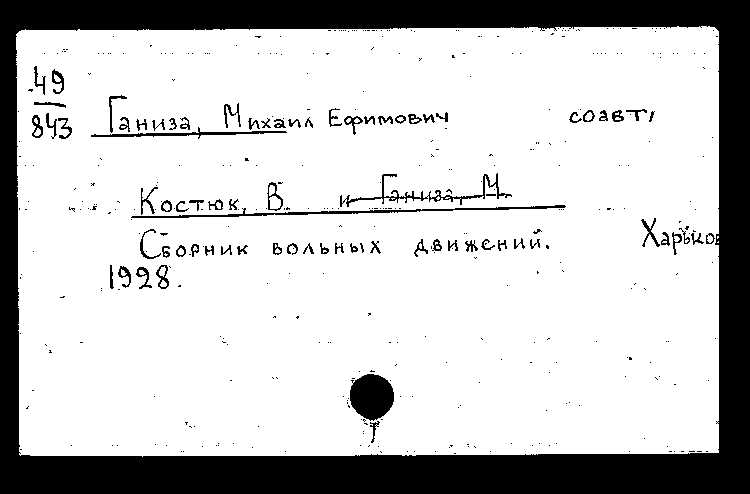 49
843
Ганиза, Михаил Ефимович соавт.
Костюк, В. и Ганиза, М.
Сборник вольных движений. Харьков
1928.